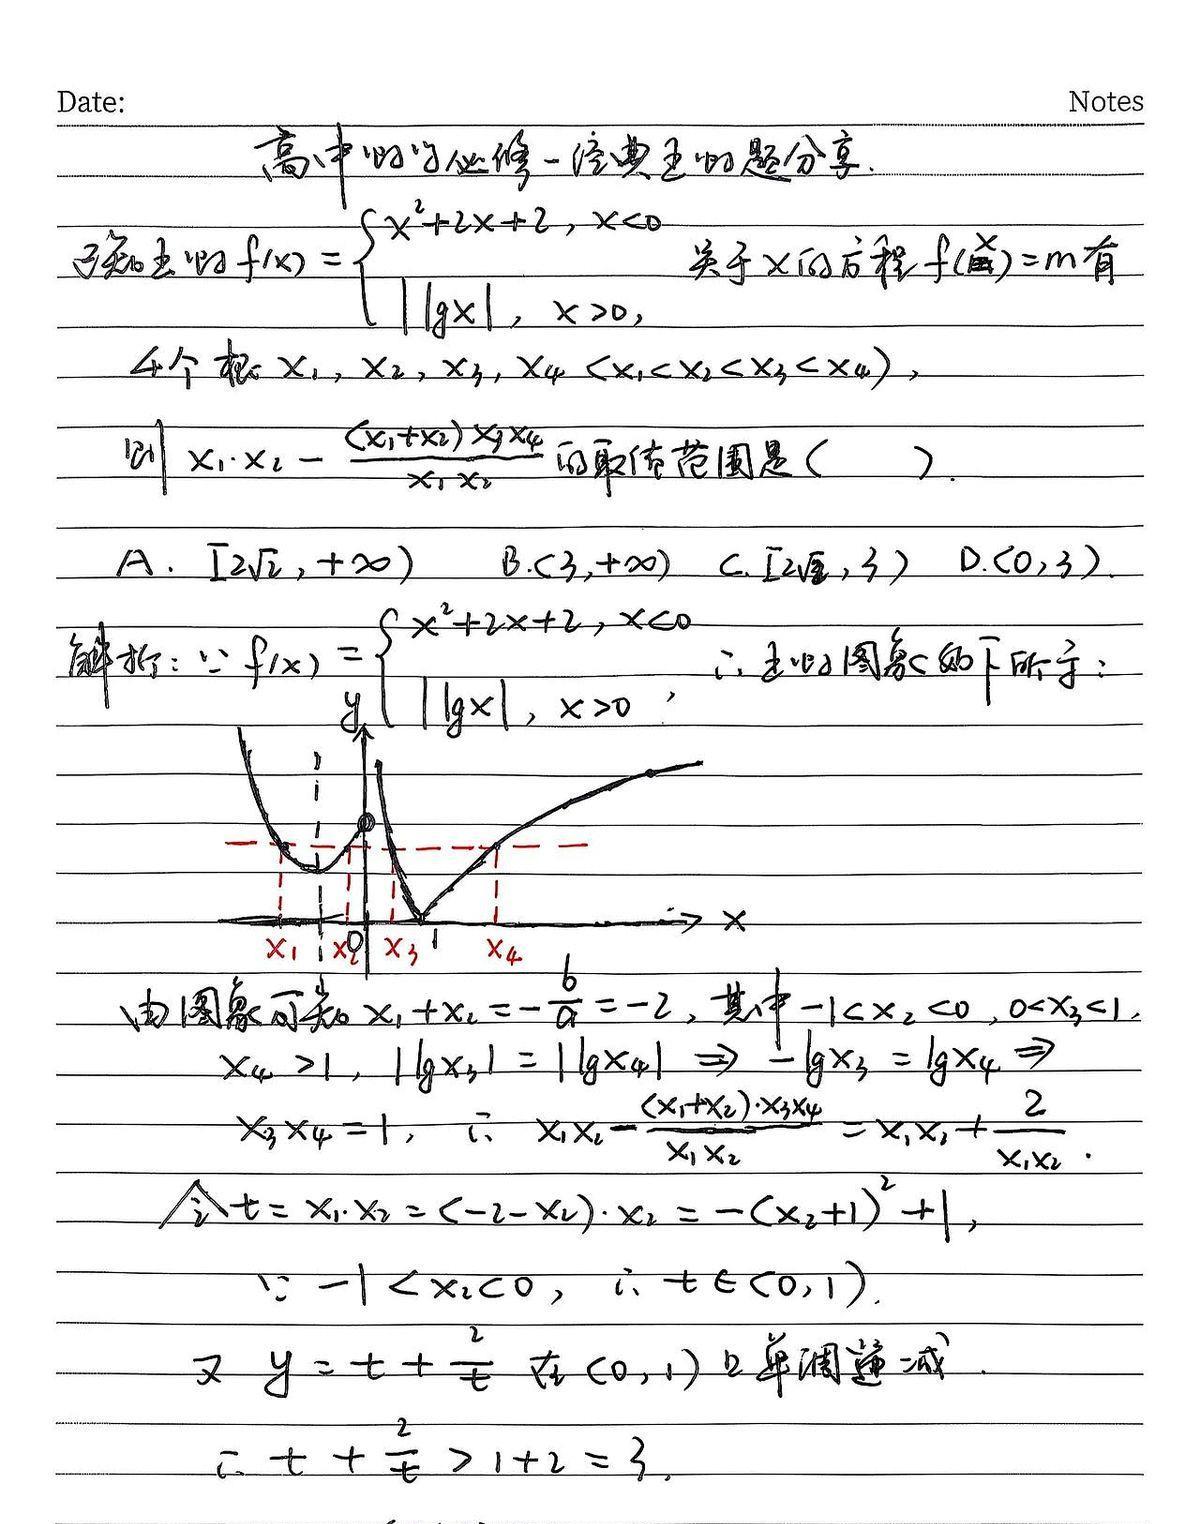 Date: Notes
高中数学必修一经典函数题分享.
已知函数 f(x) = { x²+2x+2, x<0
|lgx|, x>0,
关于x的方程 f(x)=m有
4个根 x₁, x₂, x₃, x₄ (x₁<x₂<x₃<x₄),
则 x₁·x₂ - (x₁+x₂)x₃x₄ / x₁x₂ 的取值范围是( ).
A. [2√2, +∞) B.(3,+∞) C.[2√2, 3) D.(0,3).
解析: ∵ f(x) = { x²+2x+2, x<0
|lgx|, x>0,
∴函数图象如下所示:
y
x
x₁ x₂ O x₃ 1 x₄
由图象可知 x₁+x₂ = -b/a = -2, 其中 -1<x₂<0, 0<x₃<1,
x₄>1, |lgx₃| = |lgx₄| ⇒ -lgx₃ = lgx₄ ⇒
x₃x₄=1, ∴ x₁x₂ - (x₁+x₂)·x₃x₄ / x₁x₂ = x₁x₂ + 2/x₁x₂.
令t= x₁·x₂ = (-2-x₂)·x₂ = -(x₂+1)²+1,
∵ -1<x₂<0, ∴ t∈(0,1).
又 y = t + 2/t 在(0,1)上单调递减.
∴ t + 2/t > 1+2 = 3.